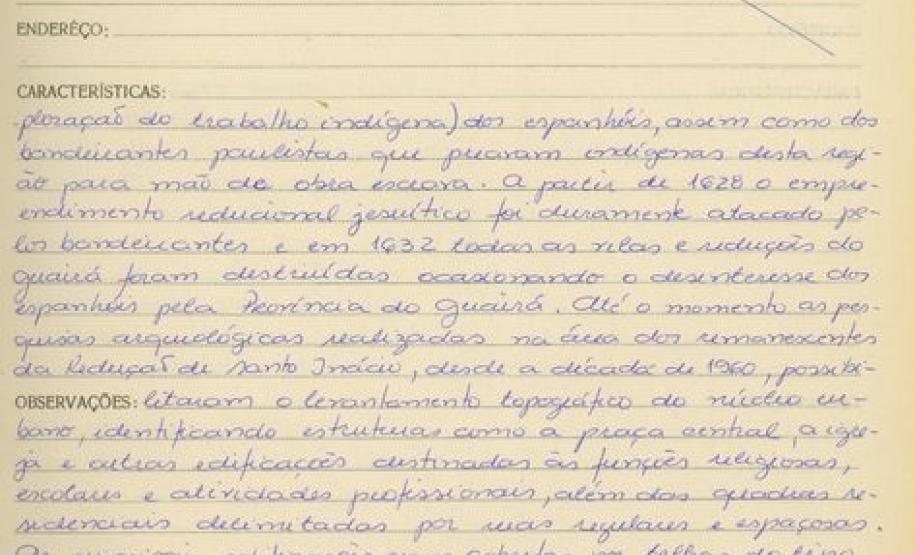 ENDERÊÇO:
CARACTERÍSTICAS:
ploração do trabalho indígena) dos espanhóis, assim como dos
bandeirantes paulistas que prearam indígenas desta regi-
ão para mão de obra escrava. A partir de 1628 o empre-
endimento reducional jesuítico foi duramente atacado pe-
los bandeirantes e em 1632 todas as vilas e reduções do
Guairá foram destruídas ocasionando o desinteresse dos
espanhóis pela Província do Guairá. Até o momento as pes-
quisas arqueológicas realizadas na área dos remanescentes
da Redução de Santo Inácio, desde a década de 1960, possibi-
OBSERVAÇÕES: litaram o levantamento topográfico do núcleo ur-
bano, identificando estruturas como a praça central, a igre-
ja e outras edificações destinadas às funções religiosas,
escolares e atividades profissionais, além das quadras re-
sidenciais delimitadas por ruas regulares e espaçosas.